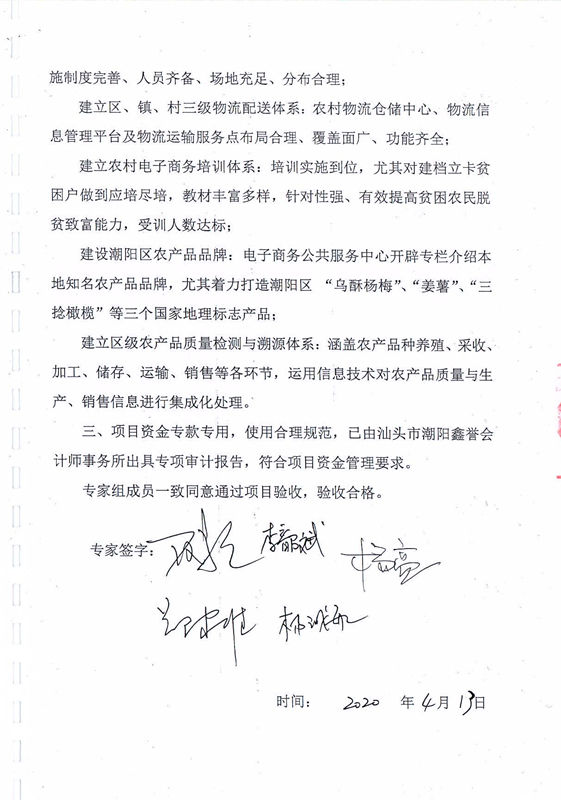 施制度完善、人员齐备、场地充足、分布合理；
建立区、镇、村三级物流配送体系：农村物流仓储中心、物流信
息管理平台及物流运输服务点布局合理、覆盖面广、功能齐全；
建立农村电子商务培训体系：培训实施到位，尤其对建档立卡贫
困户做到应培尽培，教材丰富多样，针对性强、有效提高贫困农民脱
贫致富能力，受训人数达标；
建设潮阳区农产品品牌：电子商务公共服务中心开辟专栏介绍本
地知名农产品品牌，尤其着力打造潮阳区 “乌酥杨梅”、“姜薯”、“三
捻橄榄”等三个国家地理标志产品；
建立区级农产品质量检测与溯源体系：涵盖农产品种养殖、采收、
加工、储存、运输、销售等各环节，运用信息技术对农产品质量与生
产、销售信息进行集成化处理。
三、项目资金专款专用，使用合理规范，已由汕头市潮阳鑫誉会
计师事务所出具专项审计报告，符合项目资金管理要求。
专家组成员一致同意通过项目验收，验收合格。
专家签字：
时间： 2020 年 4 月 13 日